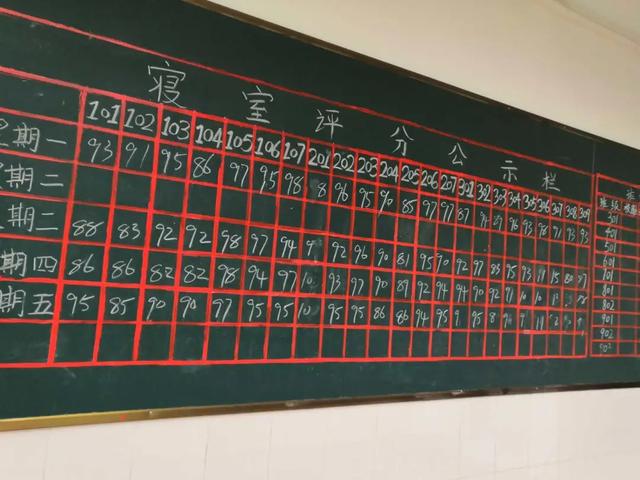 寝室评分公示栏
101 102 103 104 105 106 107 201 202 203 204 205 206 207 301 302 303 304 305 306 307 308 309
期一 93 91 95 86 97 95 98 8 96 95 90 85 97 97 87 96 93 98 93 93
期二
期二 88 83 92 92 98 97 94 92 96 90 81 95 90 92 97 83 95 93
期四 86 86 82 82 98 94 97 10 93 97 90 89 92 94 94 90 92
期五 95 85 90 90 97 95 95 10 95 95 86 86 94 95 9 95 8
班
班级
301
401
501
601
701
801
802
901
902